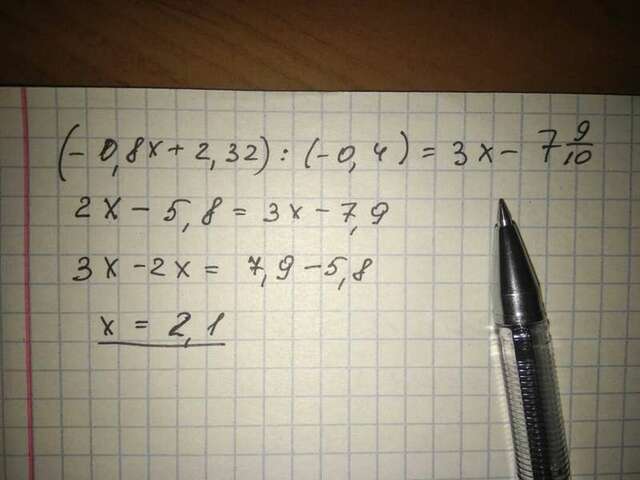 (-0,8x+2,32):(-0,4)=3x-7 9/10
2x-5,8=3x-7,9
3x-2x=7,9-5,8
x=2,1